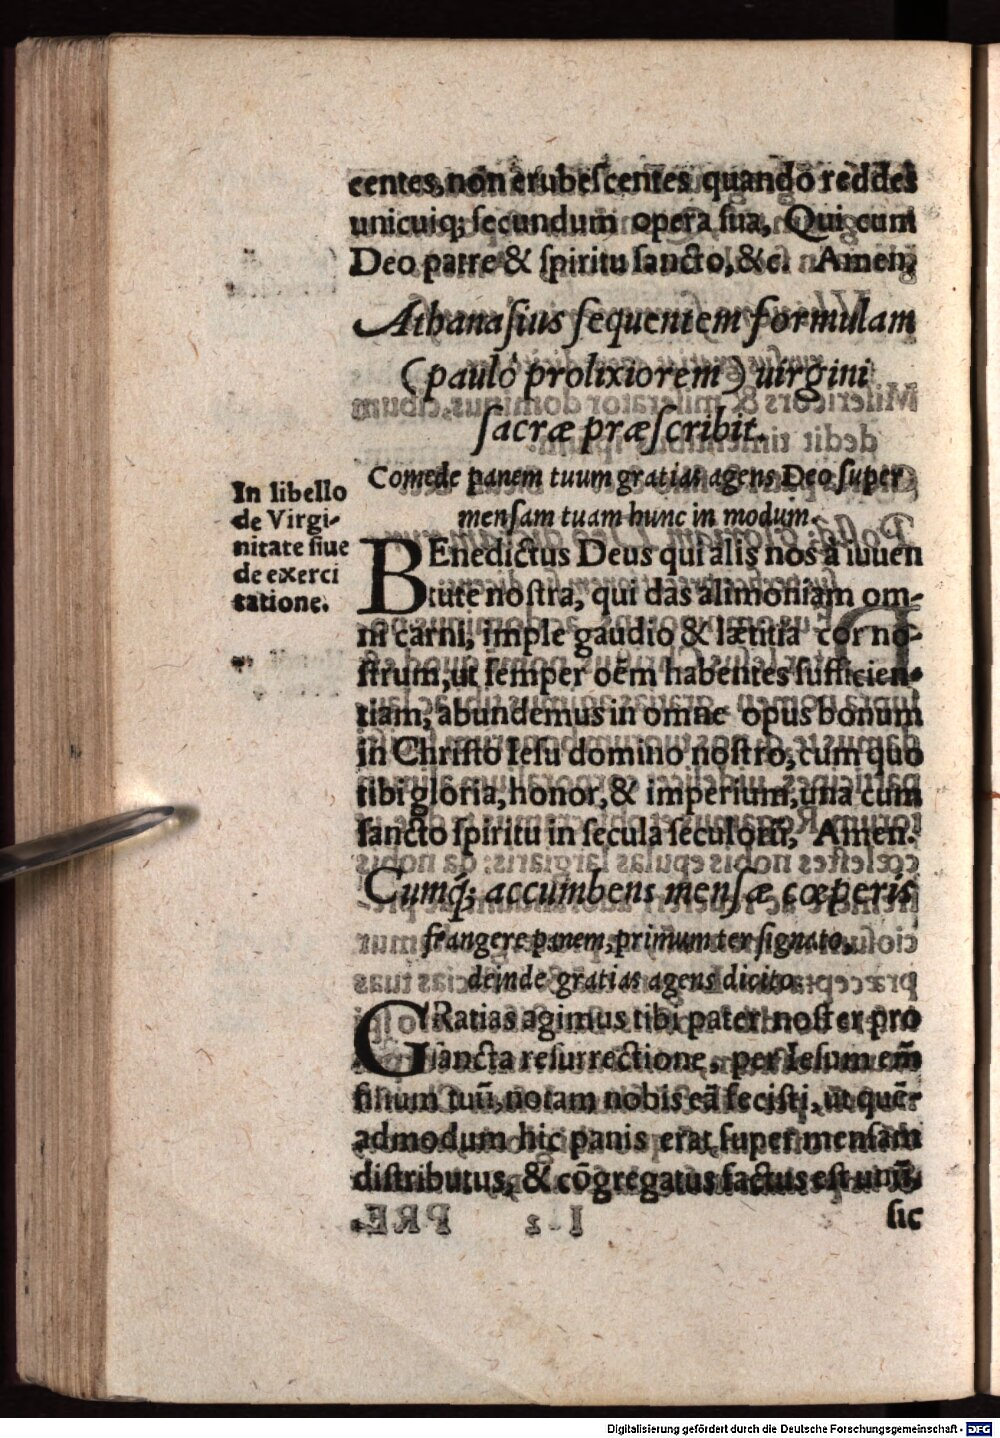 centes, non erubeſcentes quando reddes
unicuiq; ſecundum opera ſua, Qui cum
Deo patre & ſpiritu ſancto, &c. Amen.
Athanaſius ſequentem formulam
(paulò prolixiorem) uirgini
ſacræ præſcribit.
Comede panem tuum gratias agens Deo ſuper
menſam tuam hunc in modum.
In libello
de Virgi-
nitate ſiue
de exerci
tatione.
BEnedictus Deus qui alis nos à iuuen
tute noſtra, qui das alimoniam om-
ni carni, imple gaudio & lætitia cor no-
ſtrum, ut ſemper oẽm habentes ſufficien-
tiam, abundemus in omne opus bonum
in Chriſto Ieſu domino noſtro, cum quo
tibi gloria, honor, & imperium, una cum
ſancto ſpiritu in ſecula ſeculorũ, Amen.
Cumq́; accumbens menſæ cœperis
frangere panem, primum ter ſignato,
deinde gratias agens dicito.
GRatias agimus tibi pater noſter pro
ſancta reſurrectione, per Ieſum em̃
filium tuũ, notam nobis eã feciſti, ut quẽ-
admodum hic panis erat ſuper menſam
diſtributus, & cõgregatus factus eſt unũ,
ſic
Digitalisierung gefördert durch die Deutsche Forschungsgemeinschaft - DFG